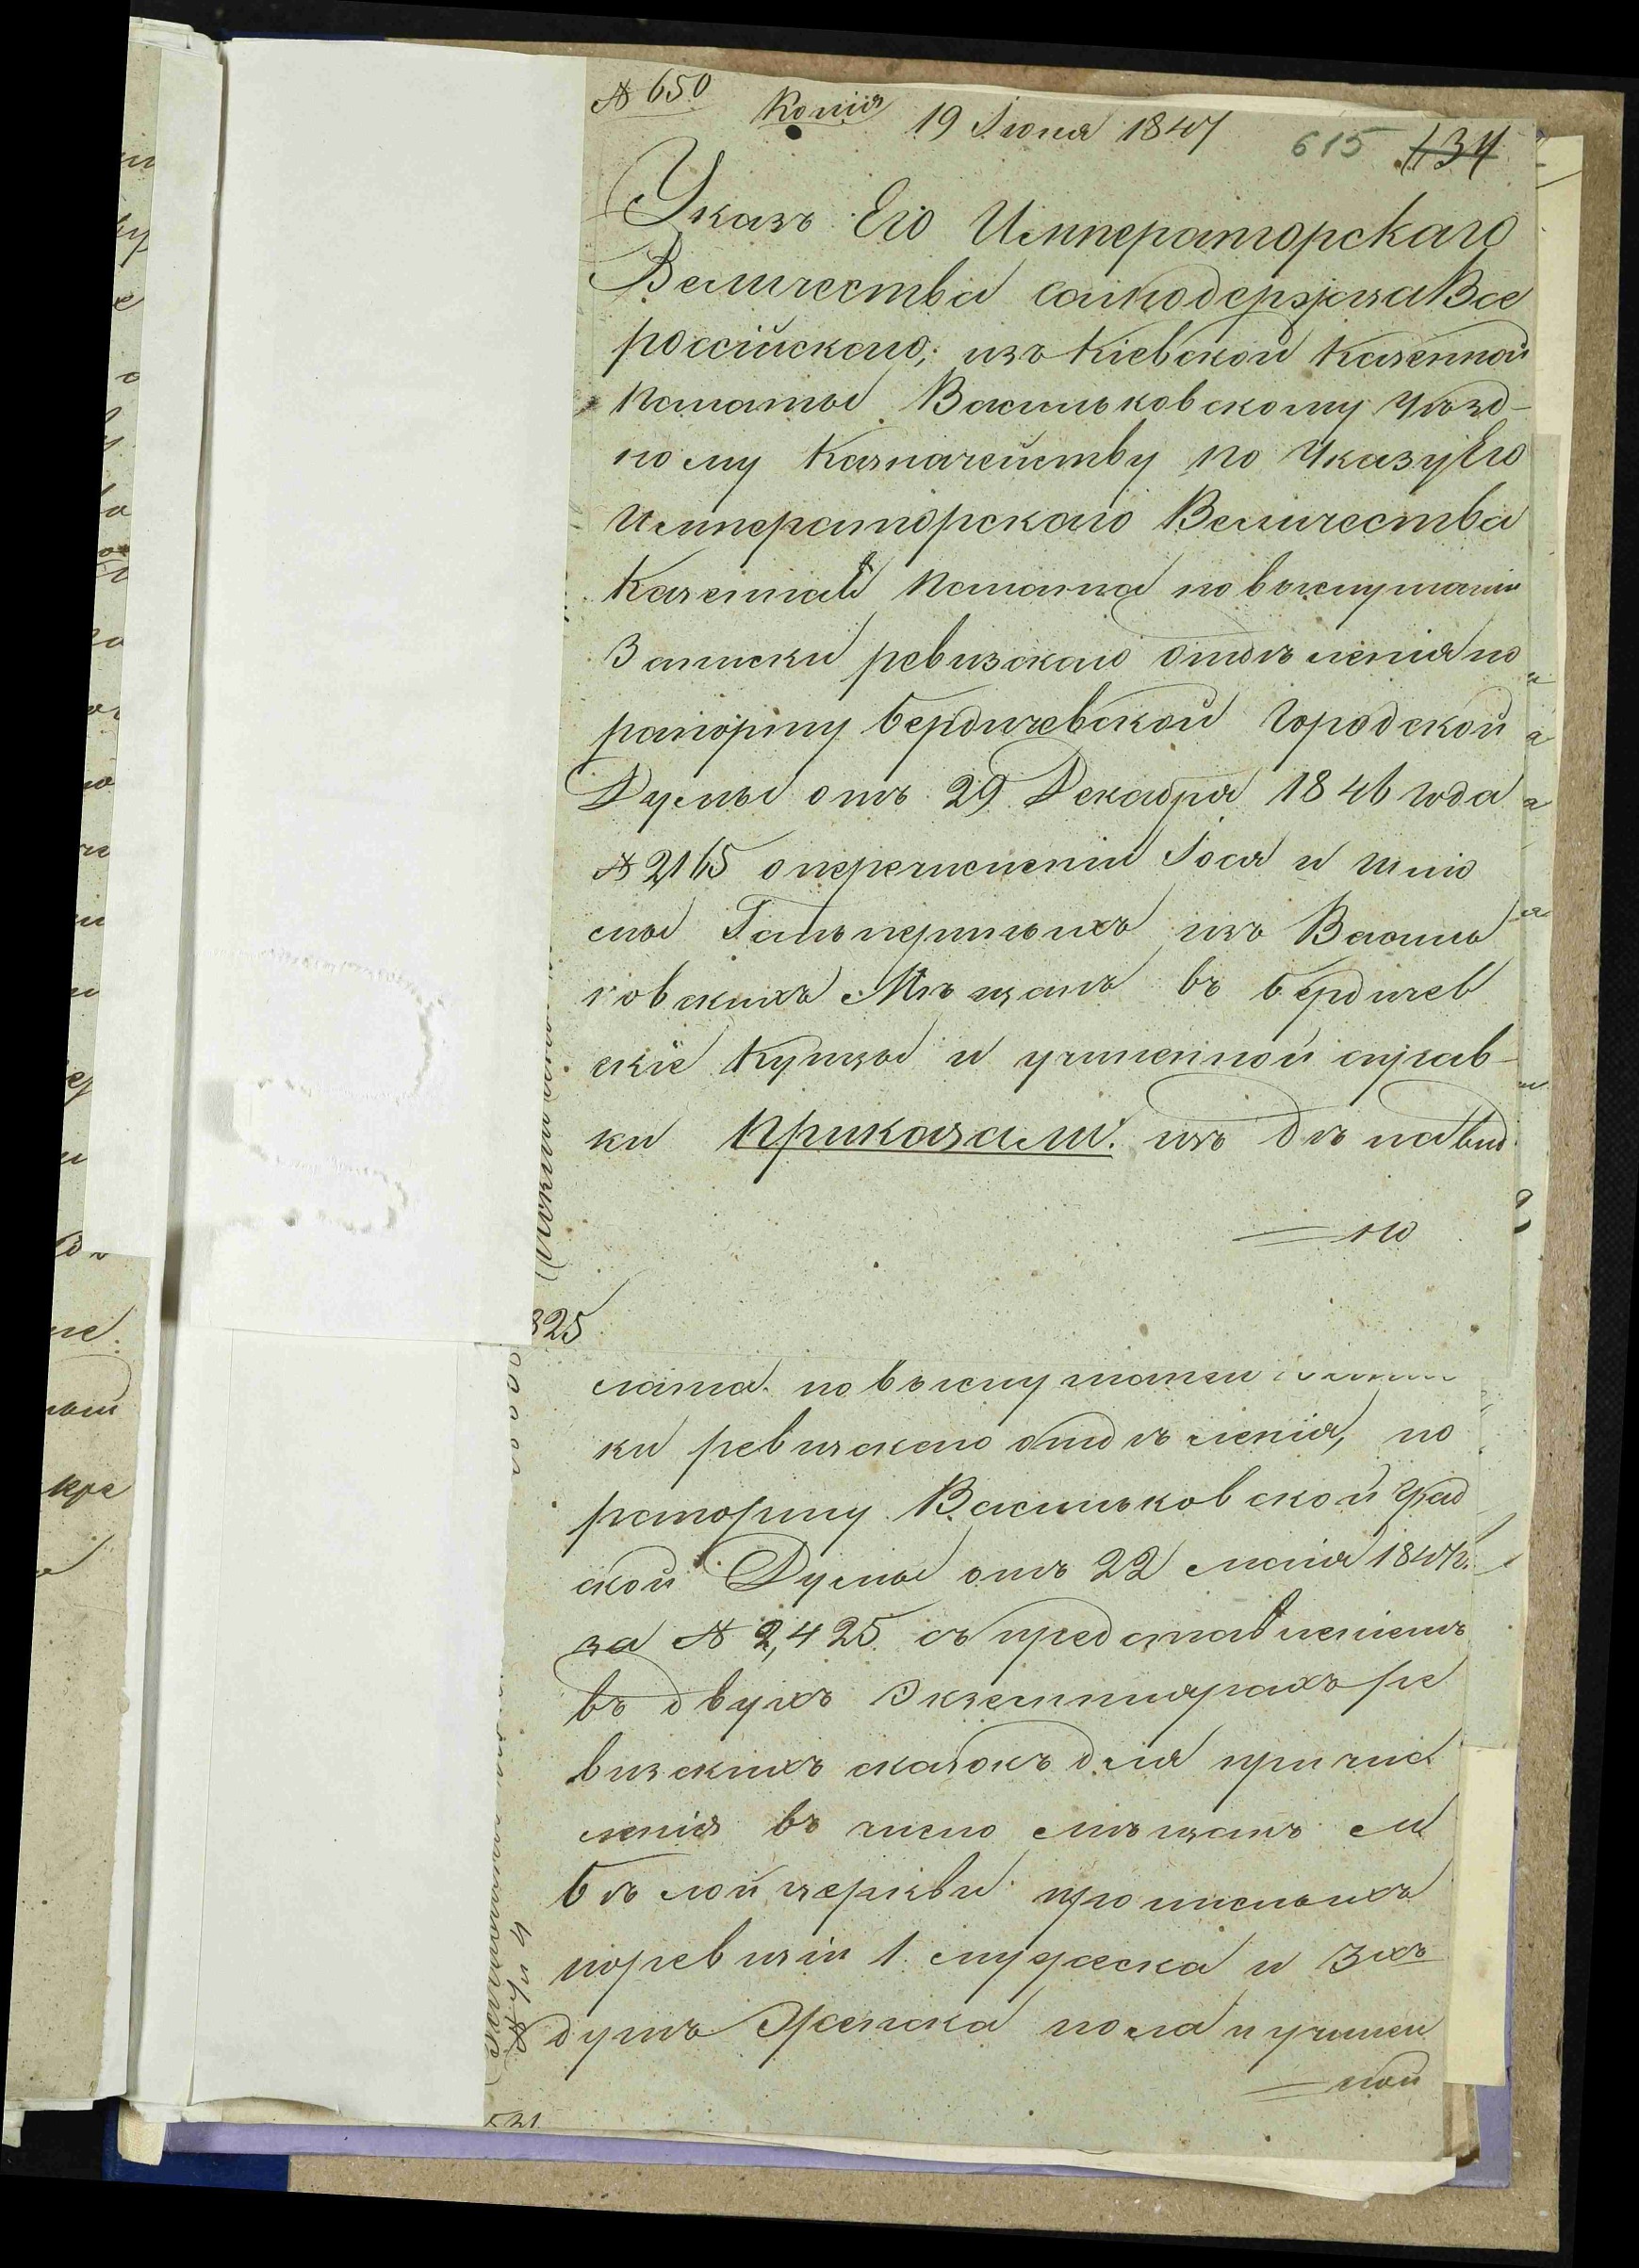 № 650
Копія 19 Іюня 1847 615 134
Указъ Его Императорскаго
Величества самодержца Все
россійскаго; изъ Кіевской Казенной
Палаты Васильковскому Уѣзд-
ному Казначейству по Указу Его
Императорскаго Величества
Казенная Палата по выслушаніи
Записки ревизскаго отдѣленія по
рапорту бердичевской Городской
Думы отъ 29 Декабря 1846 года
№ 2165 о перечисленіи Іося и Шлio
мы Гальпериныхъ изъ Василь
ковскихъ Мѣщанъ въ бердичев
скіе Купцы и учиненной справ-
ки Приказали: изъ дѣла вид
но
325
лата по выслушаніи
ки ревизскаго отдѣленія, по
рапорту Васильковской Град
ской Думы отъ 22 маія 1847 г.
за № 2,425 съ представленіемъ
въ двухъ Экземплярахъ ре
визскихъ сказокъ для причис
ленія въ число мѣщанъ м
бѣлой церкви прописныхъ
по ревизіи 1 мужеска и 3хъ
душъ Женска пола и учинен
ной
531